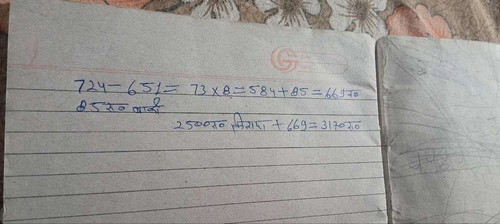 724-651= 73×8=584+85=669रु०
85रु० बाकी
2500रु० किराया +669=3170रु०